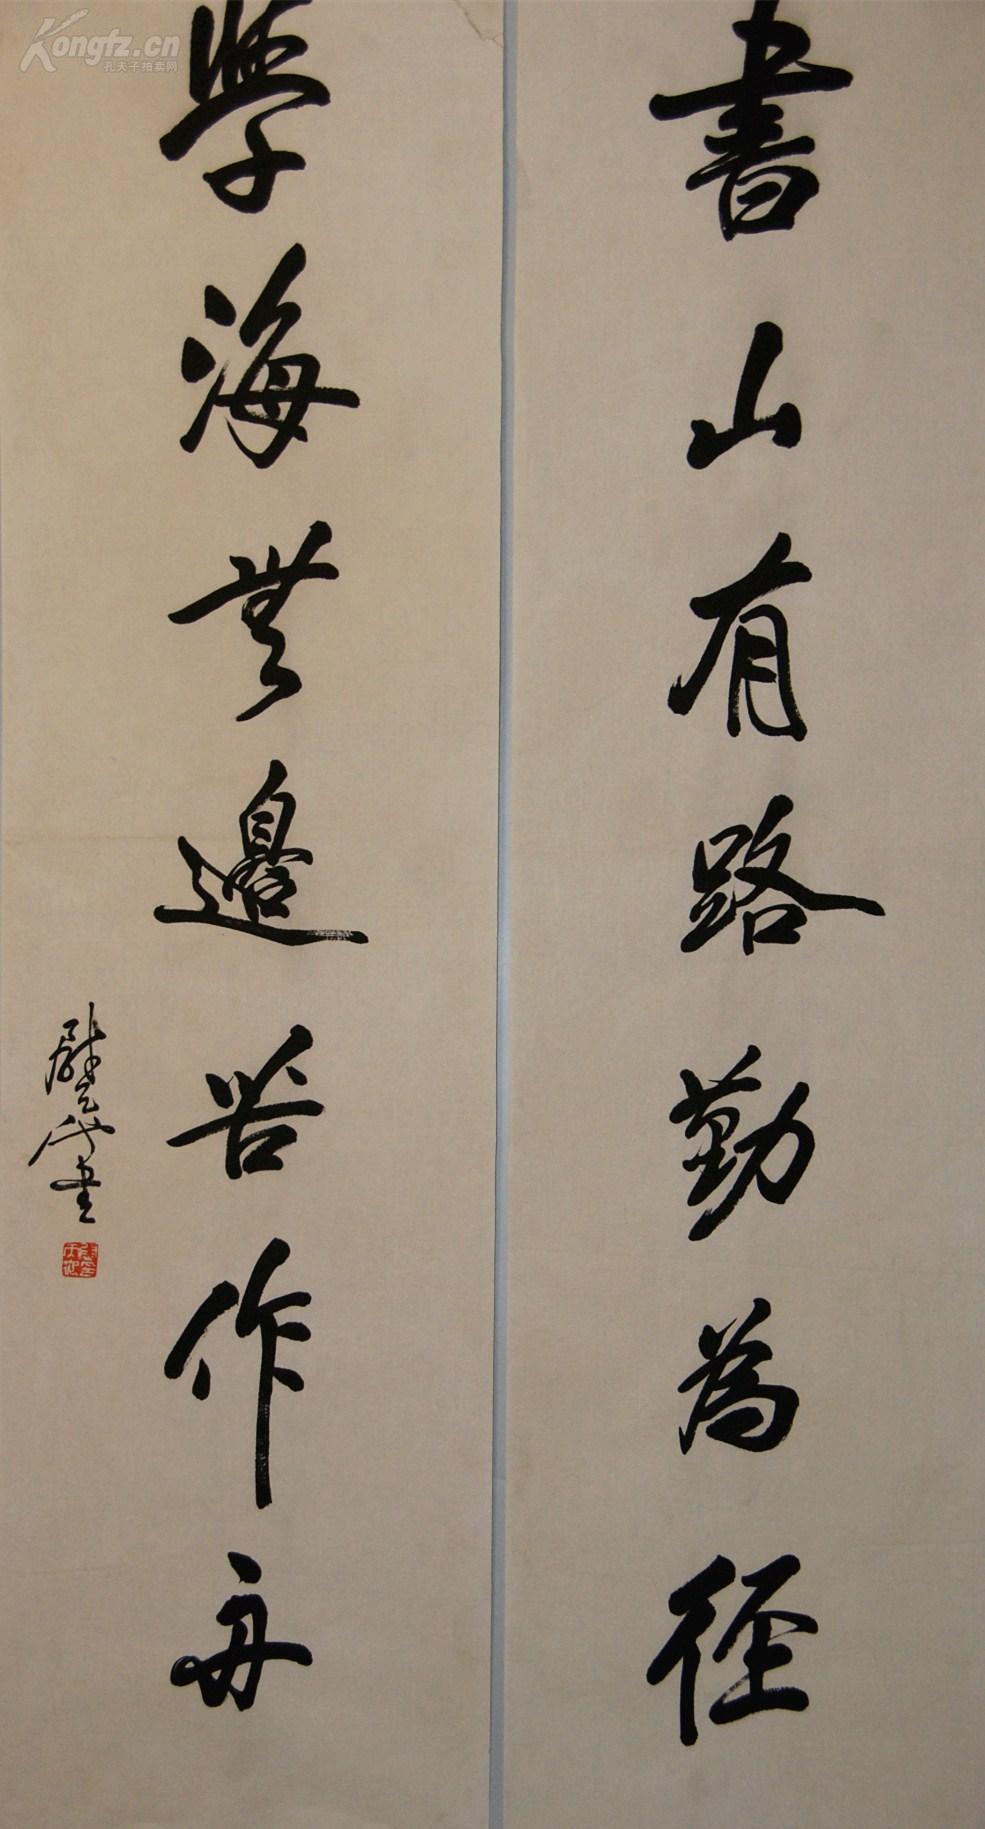 書山有路勤為径
學海無邊苦作舟
Kongfz.cn
孔夫子拍卖网